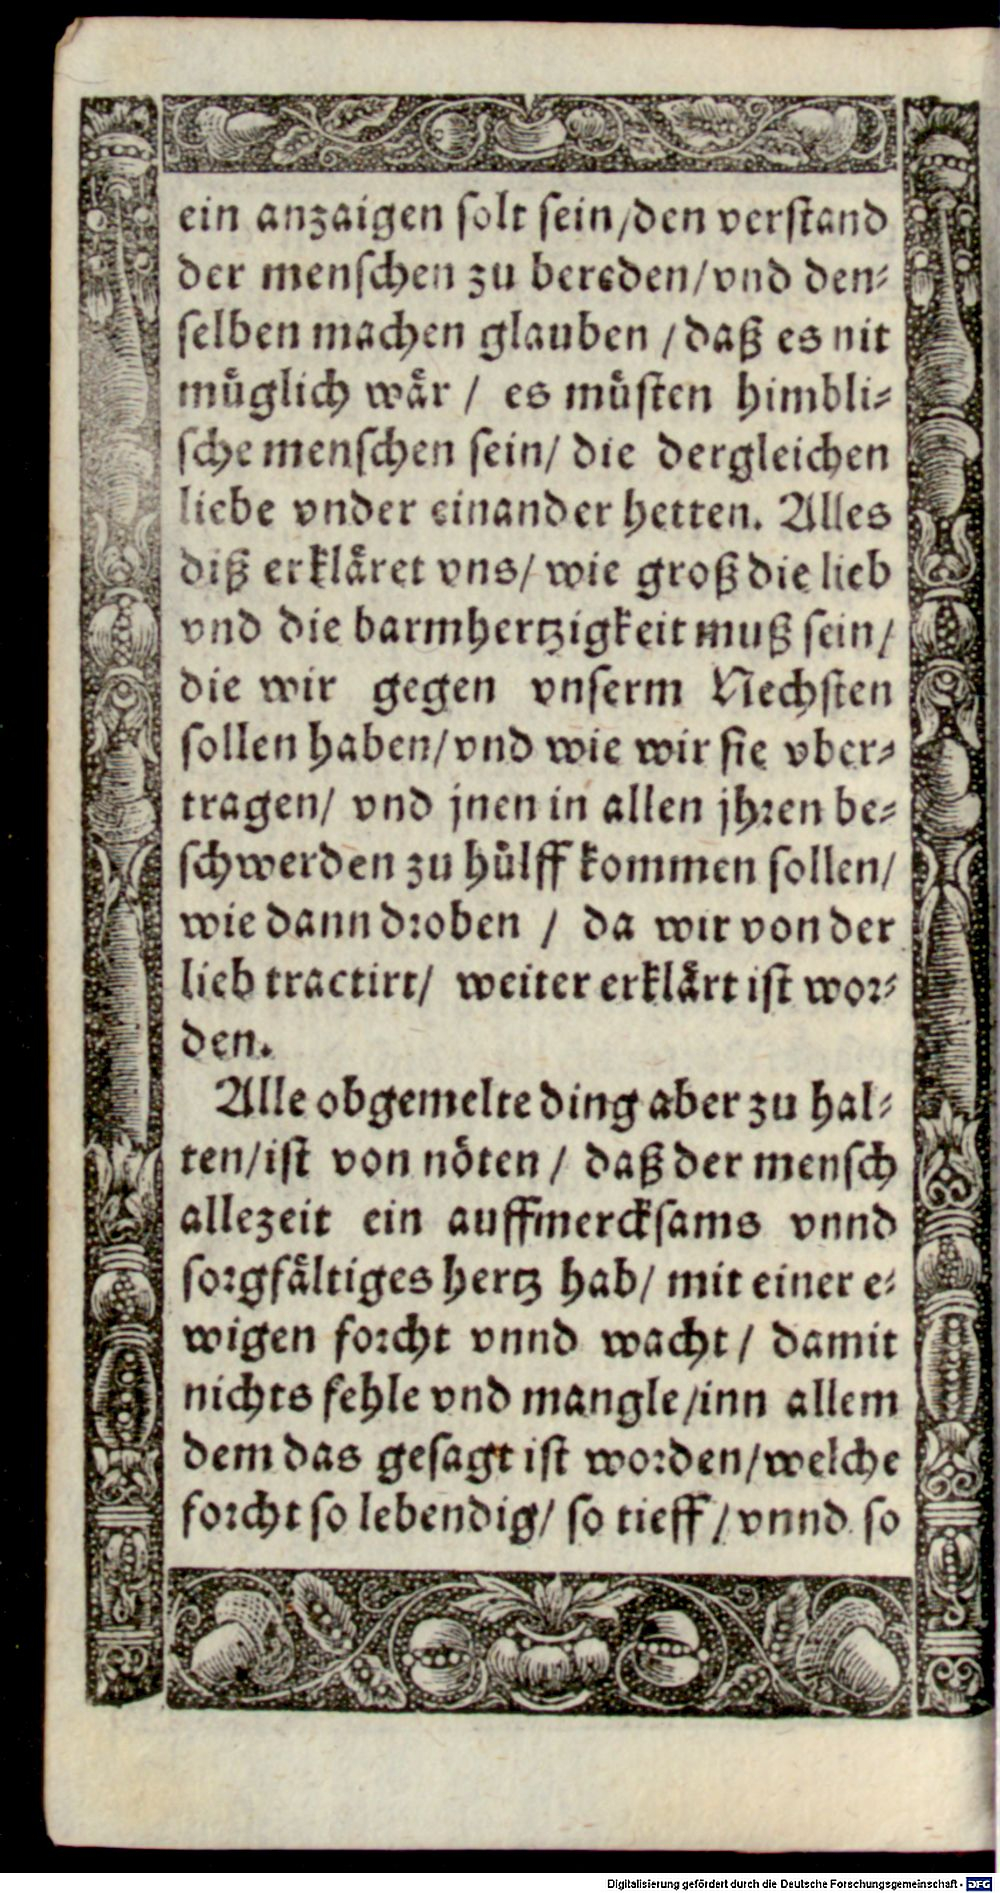 ein anzaigen solt sein/den verstand
der menschen zu bereden/vnd den-
selben machen glauben / daß es nit
müglich wär / es müsten himbli-
sche menschen sein/ die dergleichen
liebe vnder einander hetten. Alles
diß erkläret vns/ wie groß die lieb
vnd die barmhertzigkeit muß sein/
die wir gegen vnserm Nechsten
sollen haben/vnd wie wir sie vber-
tragen/ vnd jnen in allen jhren be-
schwerden zu hülff kommen sollen/
wie dann droben / da wir von der
lieb tractirt/ weiter erklärt ist wor-
den.
Alle obgemelte ding aber zu hal-
ten/ist von nöten / daß der mensch
allezeit ein auffmercksams vnnd
sorgfältiges hertz hab/ mit einer e-
wigen forcht vnnd wacht/ damit
nichts fehle vnd mangle/inn allem
dem das gesagt ist worden/welche
forcht so lebendig/ so tieff/vnnd so
Digitalisierung gefördert durch die Deutsche Forschungsgemeinschaft - DFG